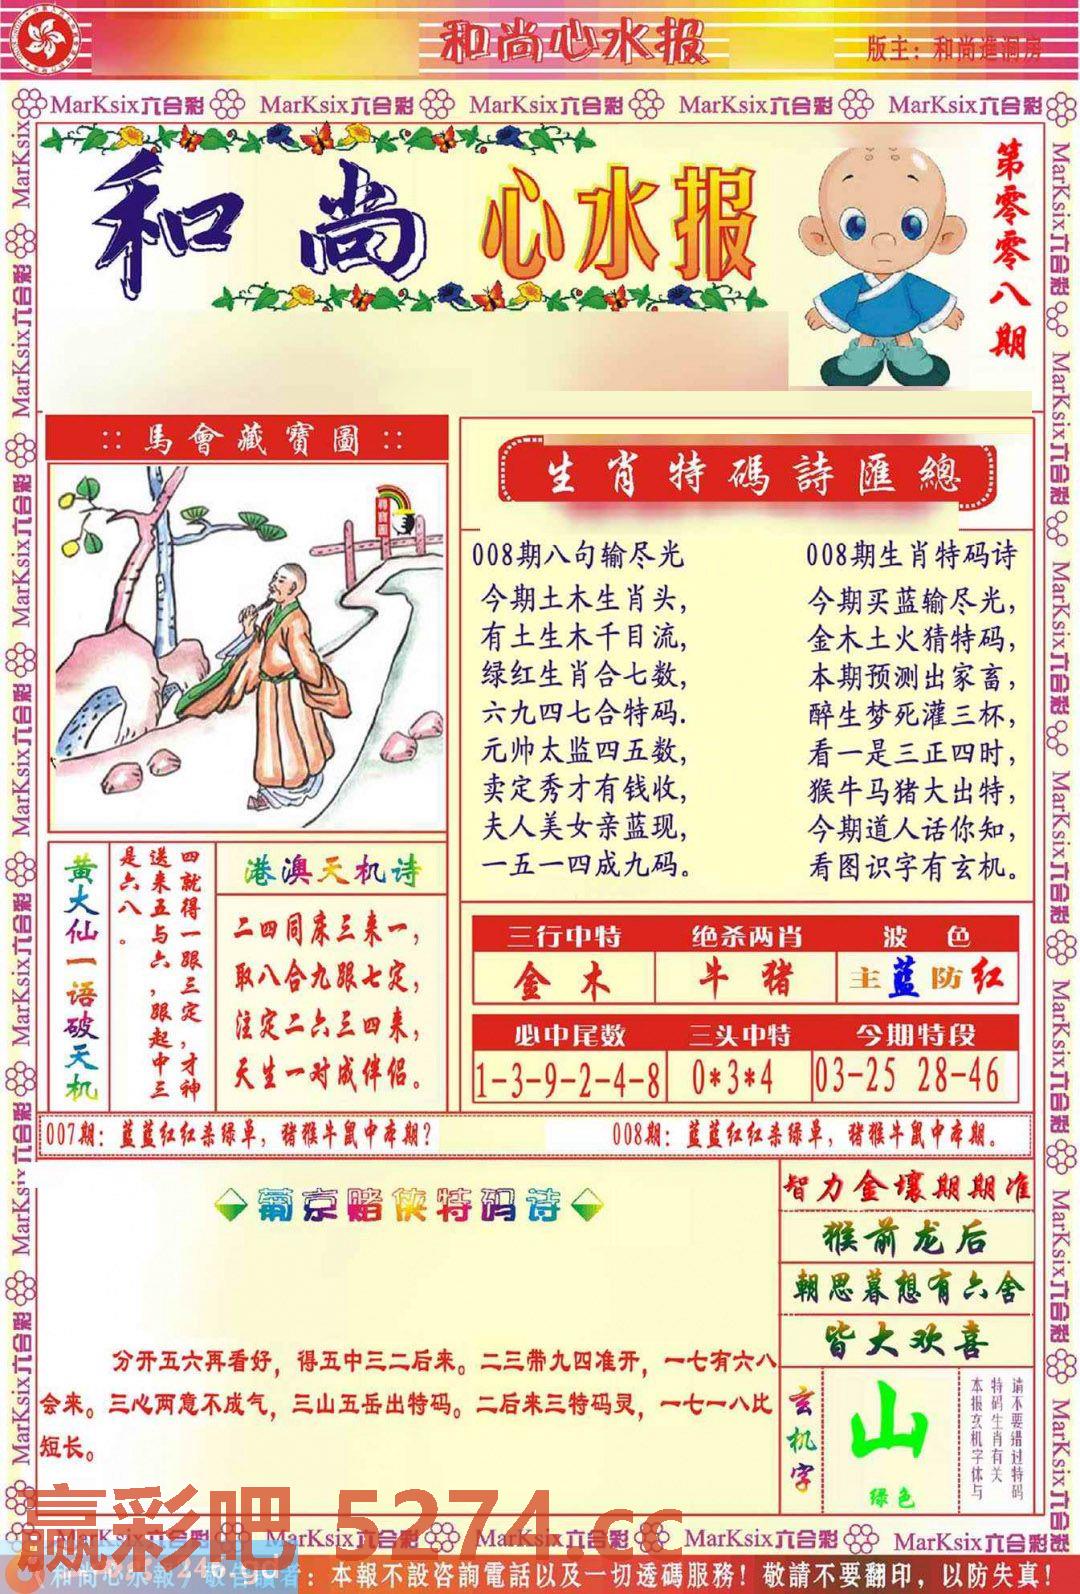 和尚心水报
版主：和尚進洞房
MarKsix六合彩 MarKsix六合彩 MarKsix六合彩 MarKsix六合彩 MarKsix六合彩
和尚心水报
第零零八期
::馬會藏寶圖::
生肖特碼詩匯總
008期八句输尽光
今期土木生肖头，
有土生木千目流，
绿红生肖合七数，
六九四七合特码.
元帅太监四五数，
卖定秀才有钱收，
夫人美女亲蓝现，
一五一四成九码。
008期生肖特码诗
今期买蓝输尽光，
金木土火猜特码，
本期预测出家畜，
醉生梦死灌三杯，
看一是三正四时，
猴牛马猪大出特，
今期道人话你知，
看图识字有玄机。
黄大仙一语破天机
四就得一跟三定，才神
送来五与六，跟起中三
是六八。
港澳天机诗
二四同床三来一，
取八合九跟七定，
注定二六三四来，
天生一对成伴侣。
三行中特 绝杀两肖 波色
金木 牛猪 主蓝防红
必中尾数 三头中特 今期特段
1-3-9-2-4-8 0*3*4 03-25 28-46
007期：蓝蓝红红杀绿单，猪猴牛鼠中本期？
008期：蓝蓝红红杀绿单，猪猴牛鼠中本期。
葡京赌侠特码诗
分开五六再看好，得五中三二后来。二三带九四准开，一七有六八
会来。三心两意不成气，三山五岳出特码。二后来三特码灵，一七一八比
短长。
智力金壤期期准
猴前龙后
朝思暮想有六舍
皆大欢喜
玄机字
山
绿色
请不要错过特码
特码生肖有关
本报玄机字体与
赢彩吧 5274.cc
246.gd
MarKsix六合彩 MarKsix六合彩 MarKsix六合彩 MarKsix六合彩
和尚心水報/敬告讀者：本報不設咨詢電話以及一切透碼服務！敬請不要翻印，以防失真！